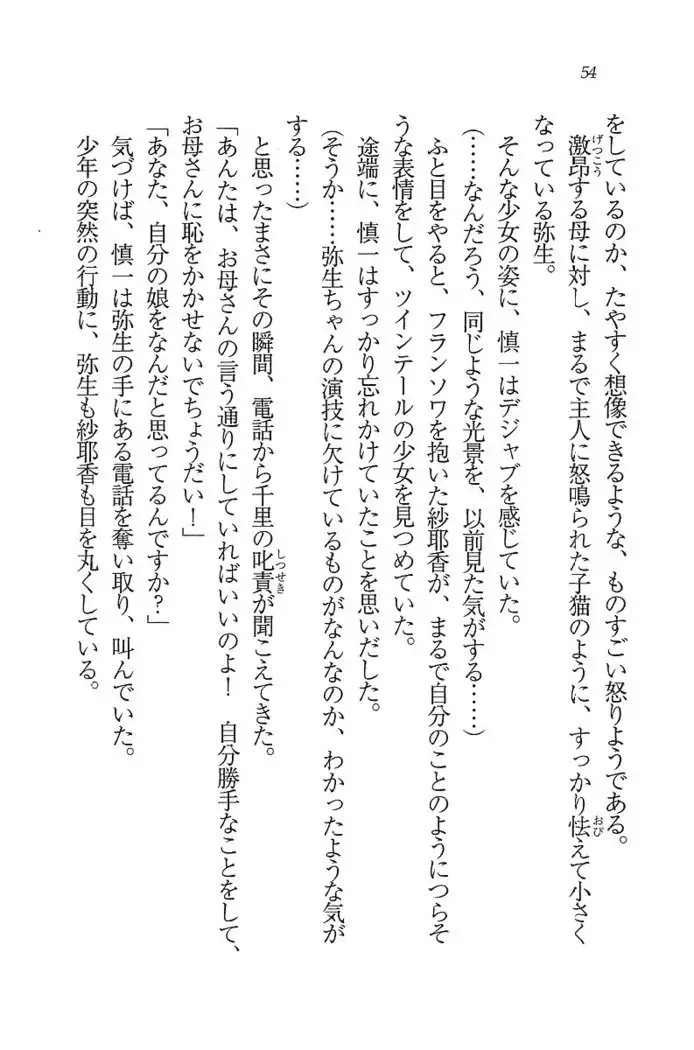 54
をしているのか、たやすく想像できるような、ものすごい怒りようである。
激昂する母に対し、まるで主人に怒鳴られた子猫のように、すっかり怯えて小さく
げっこう
おび
なっている弥生。
そんな少女の姿に、慎一はデジャブを感じていた。
(……なんだろう、同じような光景を、以前見た気がする……)
ふと目をやると、フランソワを抱いた紗耶香が、まるで自分のことのようにつらそ
うな表情をして、ツインテールの少女を見つめていた。
途端に、慎一はすっかり忘れかけていたことを思いだした。
(そうか……弥生ちゃんの演技に欠けているものがなんなのか、わかったような気が
する……)
と思ったまさにその瞬間、電話から千里の叱責が聞こえてきた。
しっせき
「あんたは、お母さんの言う通りにしていればいいのよ！　自分勝手なことをして、
お母さんに恥をかかせないでちょうだい！」
「あなた、自分の娘をなんだと思ってるんですか？」
気づけば、慎一は弥生の手にある電話を奪い取り、叫んでいた。
少年の突然の行動に、弥生も紗耶香も目を丸くしている。